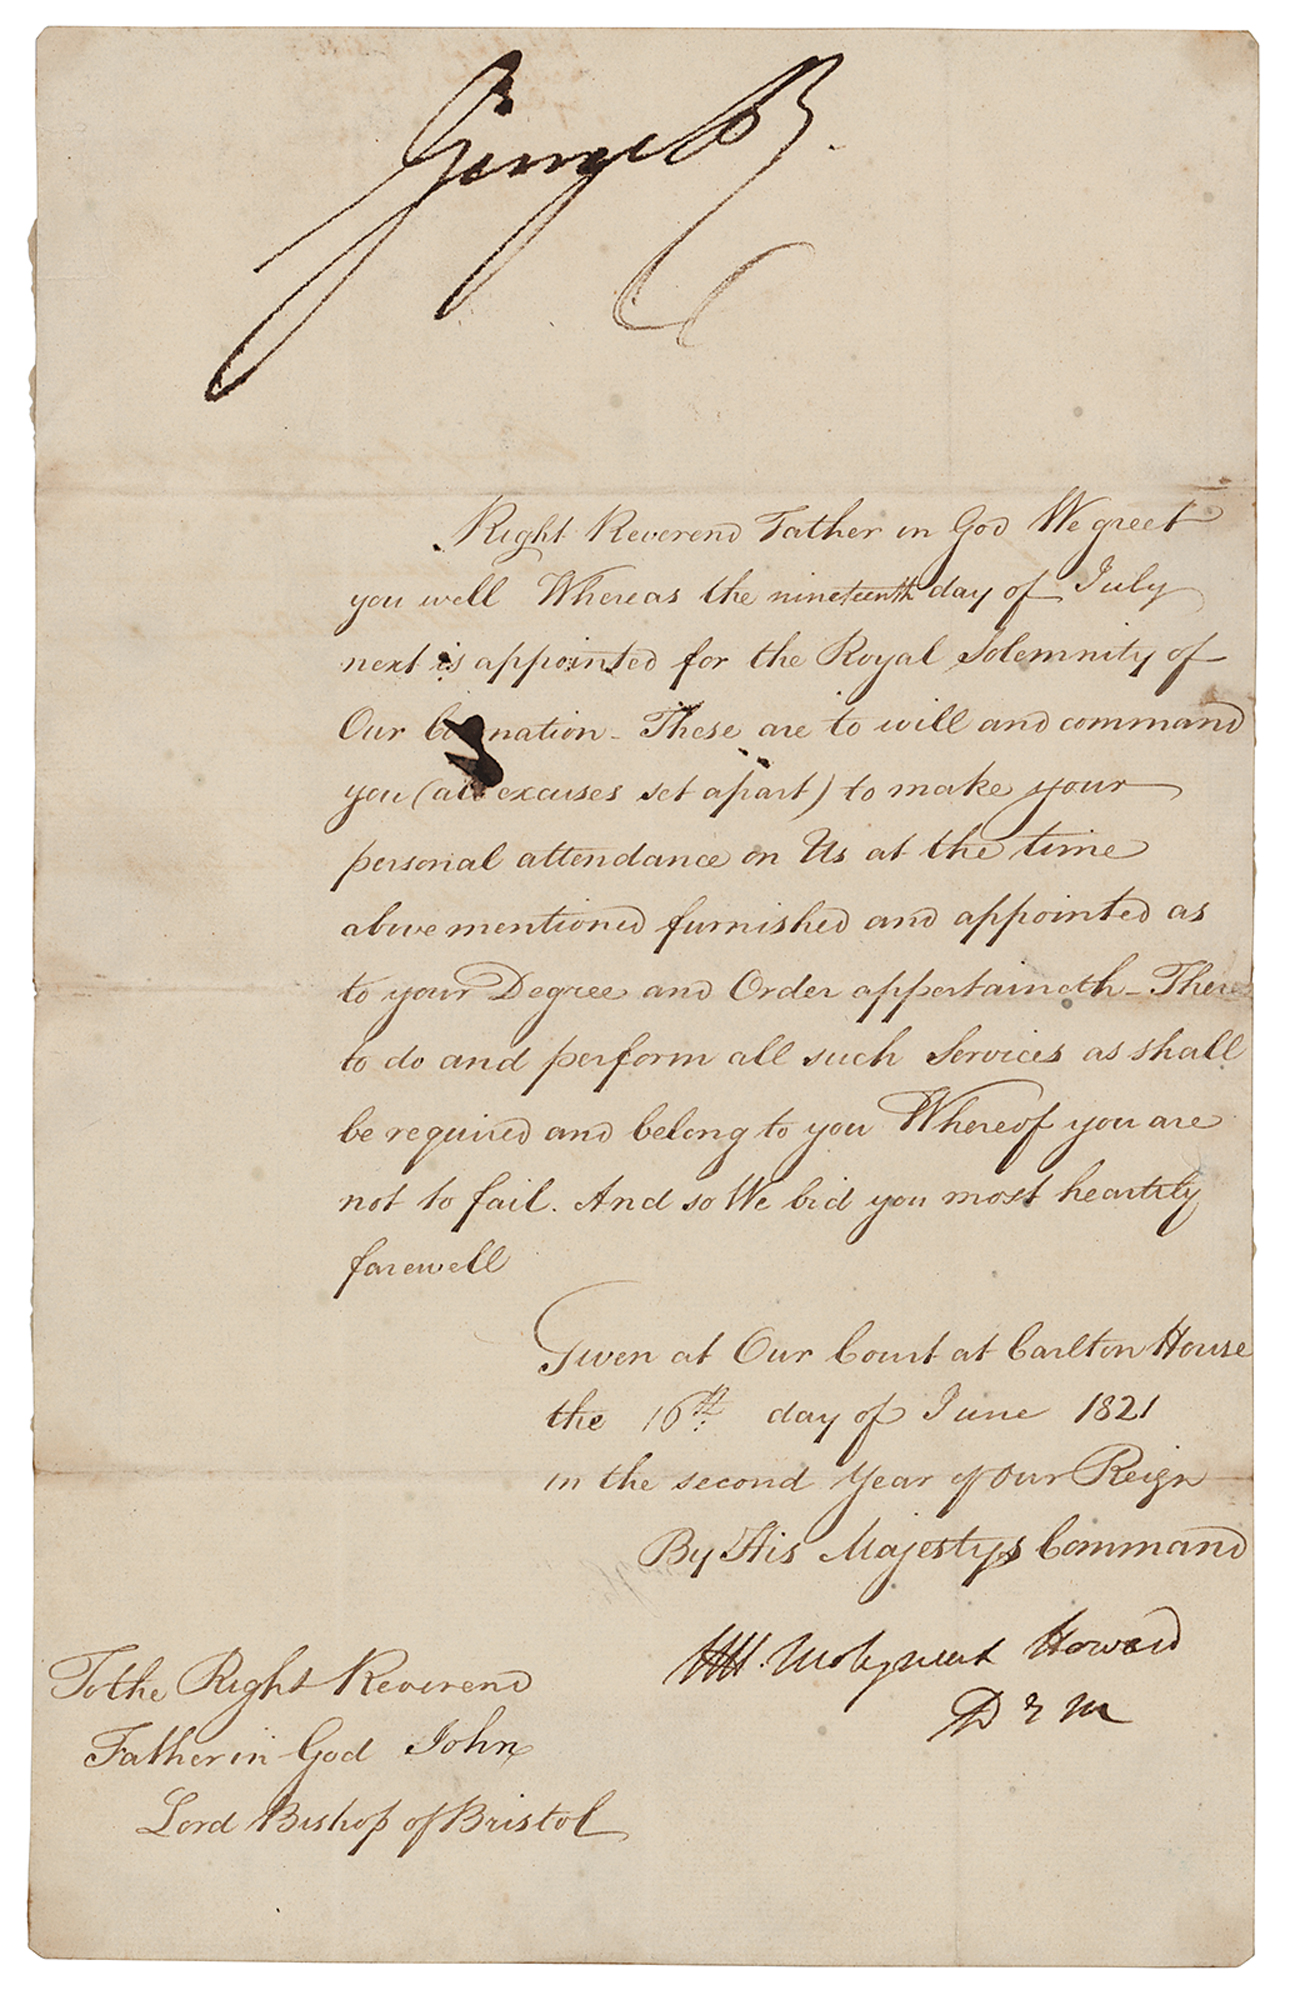 George R.
Right Reverend Father in God We greet
you well Whereas the nineteenth day of July
next is appointed for the Royal Solemnity of
Our Coronation - These are to will and command
you (all excuses set apart) to make your
personal attendance on Us at the time
above mentioned furnished and appointed as
to your Degree and Order appertaineth - There
to do and perform all such Services as shall
be required and belong to you Whereof you are
not to fail. And so We bid you most heartily
farewell
Given at Our Court at Carlton House
the 16th. day of June 1821
in the second Year of Our Reign
By His Majestys Command
H. Molyneux Howard
D E M
To the Right Reverend
Father in God John
Lord Bishop of Bristol